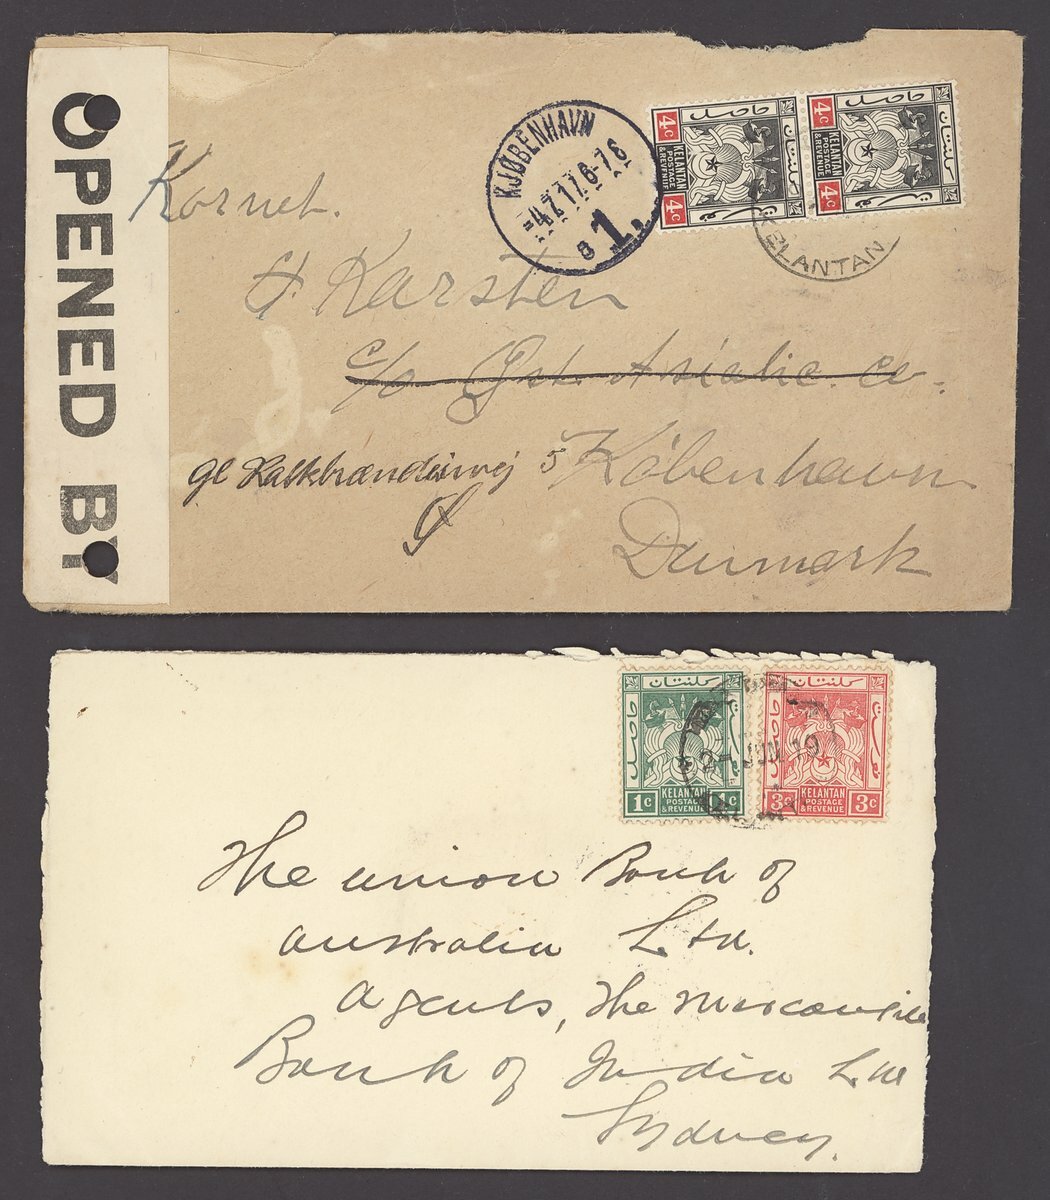 OPENED BY
Kornet.
KJØBENHAVN
4.7.17.6-7.E
8 1.
4c 4c
KELANTAN POSTAGE & REVENUE
4c 4c
KELANTAN
H Karsten
c/o Øst Asiatic Co.
gl Kalkbrænderivej 5 København
Ø
Danmark
كلنتان
كلنتان
2-JUN 19
1c KELANTAN POSTAGE & REVENUE 1c
3c KELANTAN POSTAGE & REVENUE 3c
The Union Bank of
Australia Ltd.
Agents, The Mercantile
Bank of India Ltd
Sydney.